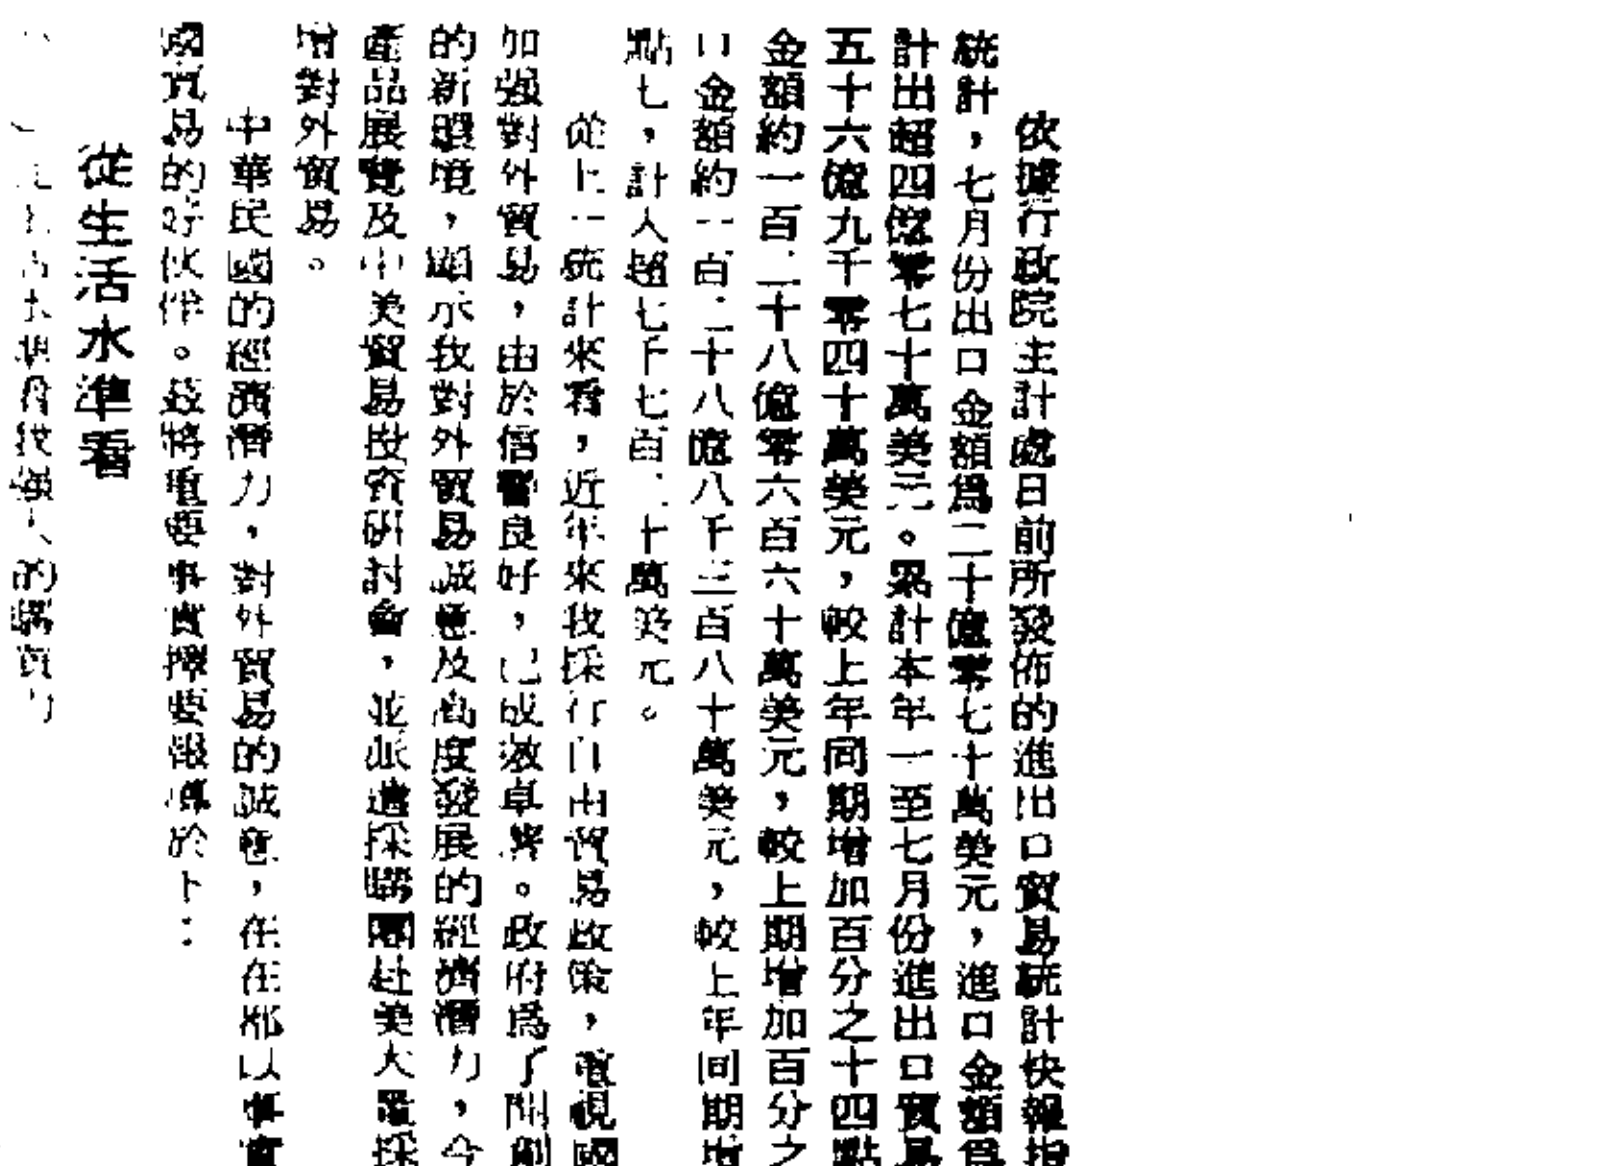 依據行政院主計處日前所發佈的進出口貿易統計快報指
統計，七月份出口金額爲二十億零七十萬美元，進口金額爲
計出超四億零七十萬美元。累計本年一至七月份進出口貿易
五十六億九千零四十萬美元，較上年同期增加百分之十四點
金額約一百二十八億零六百六十萬美元，較上期增加百分之
口金額約一百二十八億八千三百八十萬美元，較上年同期增
點七，計入超七千七百二十萬美元。
從上一統計來看，近年來我採行自由貿易政策，重視國
加强對外貿易，由於信譽良好，已成效卓著。政府爲了開創
的新環境，顯示我對外貿易誠意及高度發展的經濟潛力，今
產品展覽及中美貿易投資研討會，並派遣採購團赴美大量採
增對外貿易。
中華民國的經濟潛力，對外貿易的誠意，在在都以事實
國貿易的好伙伴。茲將重要事實擇要報導於下：
從生活水準看
的購買力